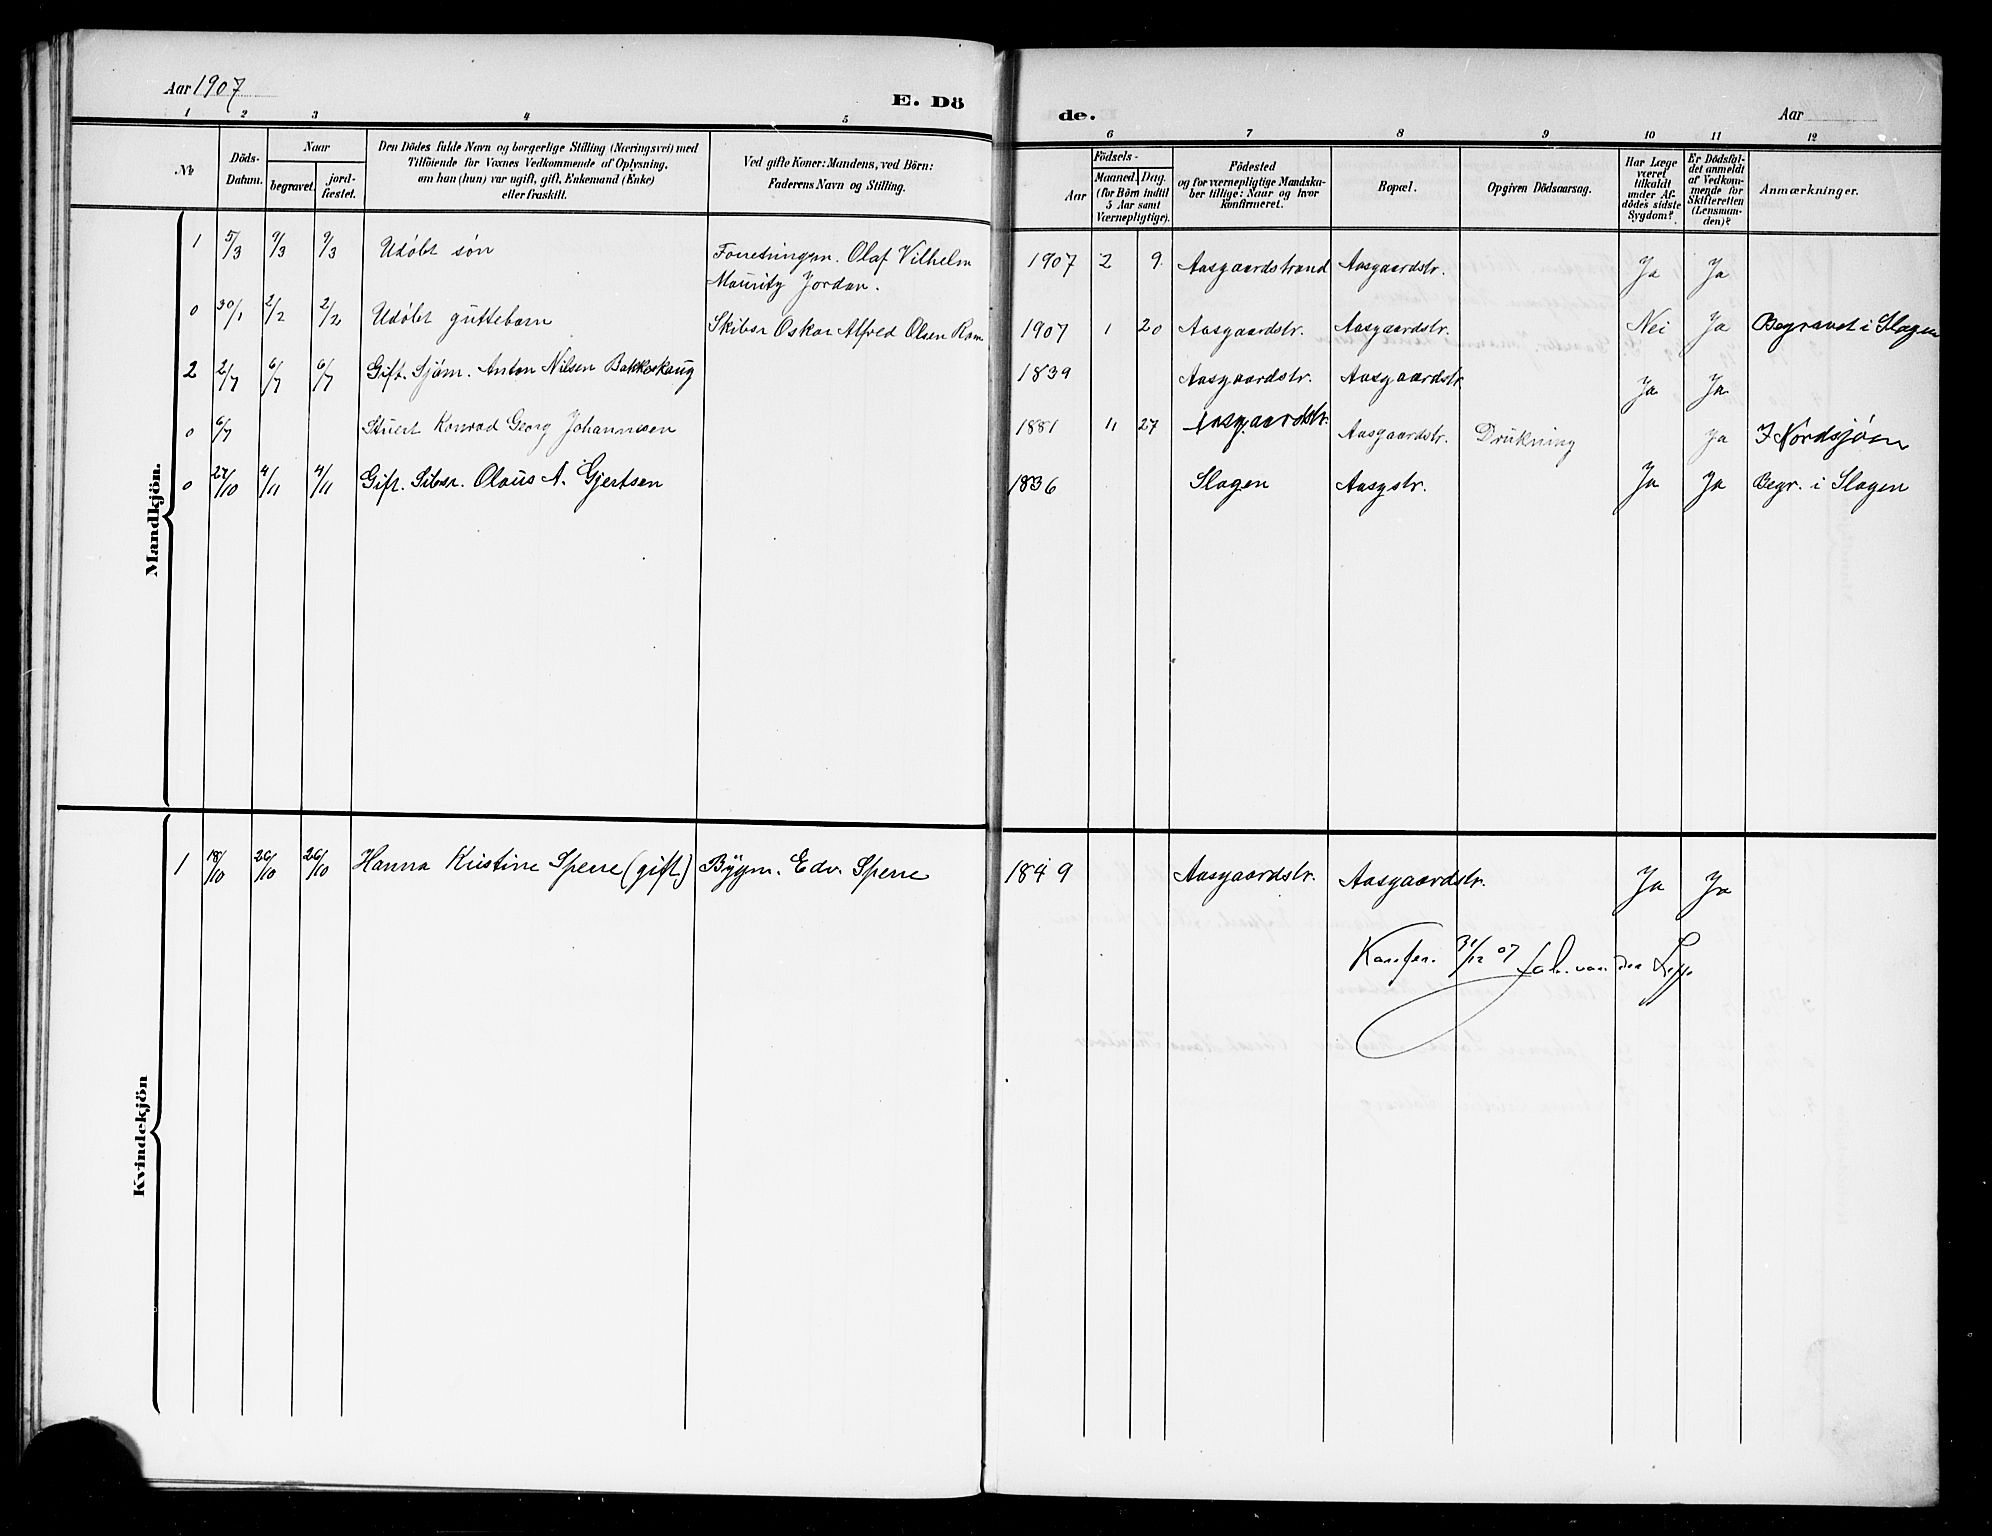 Aar 1907
E. Dö
de.
Aar
1 2 3 4 5
6 7 8 9 10 11 12
No
Döds-
Datum.
Naar
begravet.
jord-
fæstet.
Den Dödes fulde Navn og borgerlige Stilling (Næringsvei) med
Tilföiende for Voxnes Vedkommende af Oplysning,
om han (hun) var ugift, gift, Enkemand (Enke)
eller fraskilt.
Ved gifte Koner: Mandens, ved Börn:
Faderens Navn og Stilling.
Födsels-
Aar
Maaned. Dag.
(for Börn indtil
5 Aar samt
Værnepligtige).
Födested
og for værnepligtige Mandska-
ber tillige: Naar og hvor
konfirmeret.
Bopæl.
Opgiven Dödsaarsag.
Har Læge
været
tilkaldt
under Af-
dödes sidste
Sygdom?
Er Dödsfal-
det anmeldt
af Vedkom-
mende for
Skifteretten
(Lensman-
den)?
Anmærkninger.
Mandkjön.
1 5/3 9/3 9/3 Udøbt søn Forretningsm. Olaf Vilhelm
Mauritz Jordan.
1907 2 9 Aasgaardstrand Aasgaardstr. Ja Ja
0 30/1 2/2 2/2 Udøbt guttebarn Skibsr Oskar Alfred Olsen Ram
1907 1 20 Aasgaardstr. Aasgaardstr. Nei Ja Begravet i Slagen
2 2/7 6/7 6/7 Gift. Sjøm. Anton Nilsen Bakkeskaug 1839 Aasgaardstr. Aasgaardstr Ja Ja
0 6/7 Stuert Konrad Georg Johannesen 1881 11 27 Aasgaardstr. Aasgaardstr. Drukning Ja I Nordsjøen
0 27/10 4/11 4/11 Gift. Sibsr. Olaus A. Gjertsen 1836 Slagen Aasgstr. Ja Ja Begr. i Slagen
Kvindekjön
1 18/10 26/10 26/10 Hanna Kristine Sperre (gift) Bygm. Edv. Sperre 1849 Aasgaardstr. Aasgaardstr. Ja Ja
31/12 07